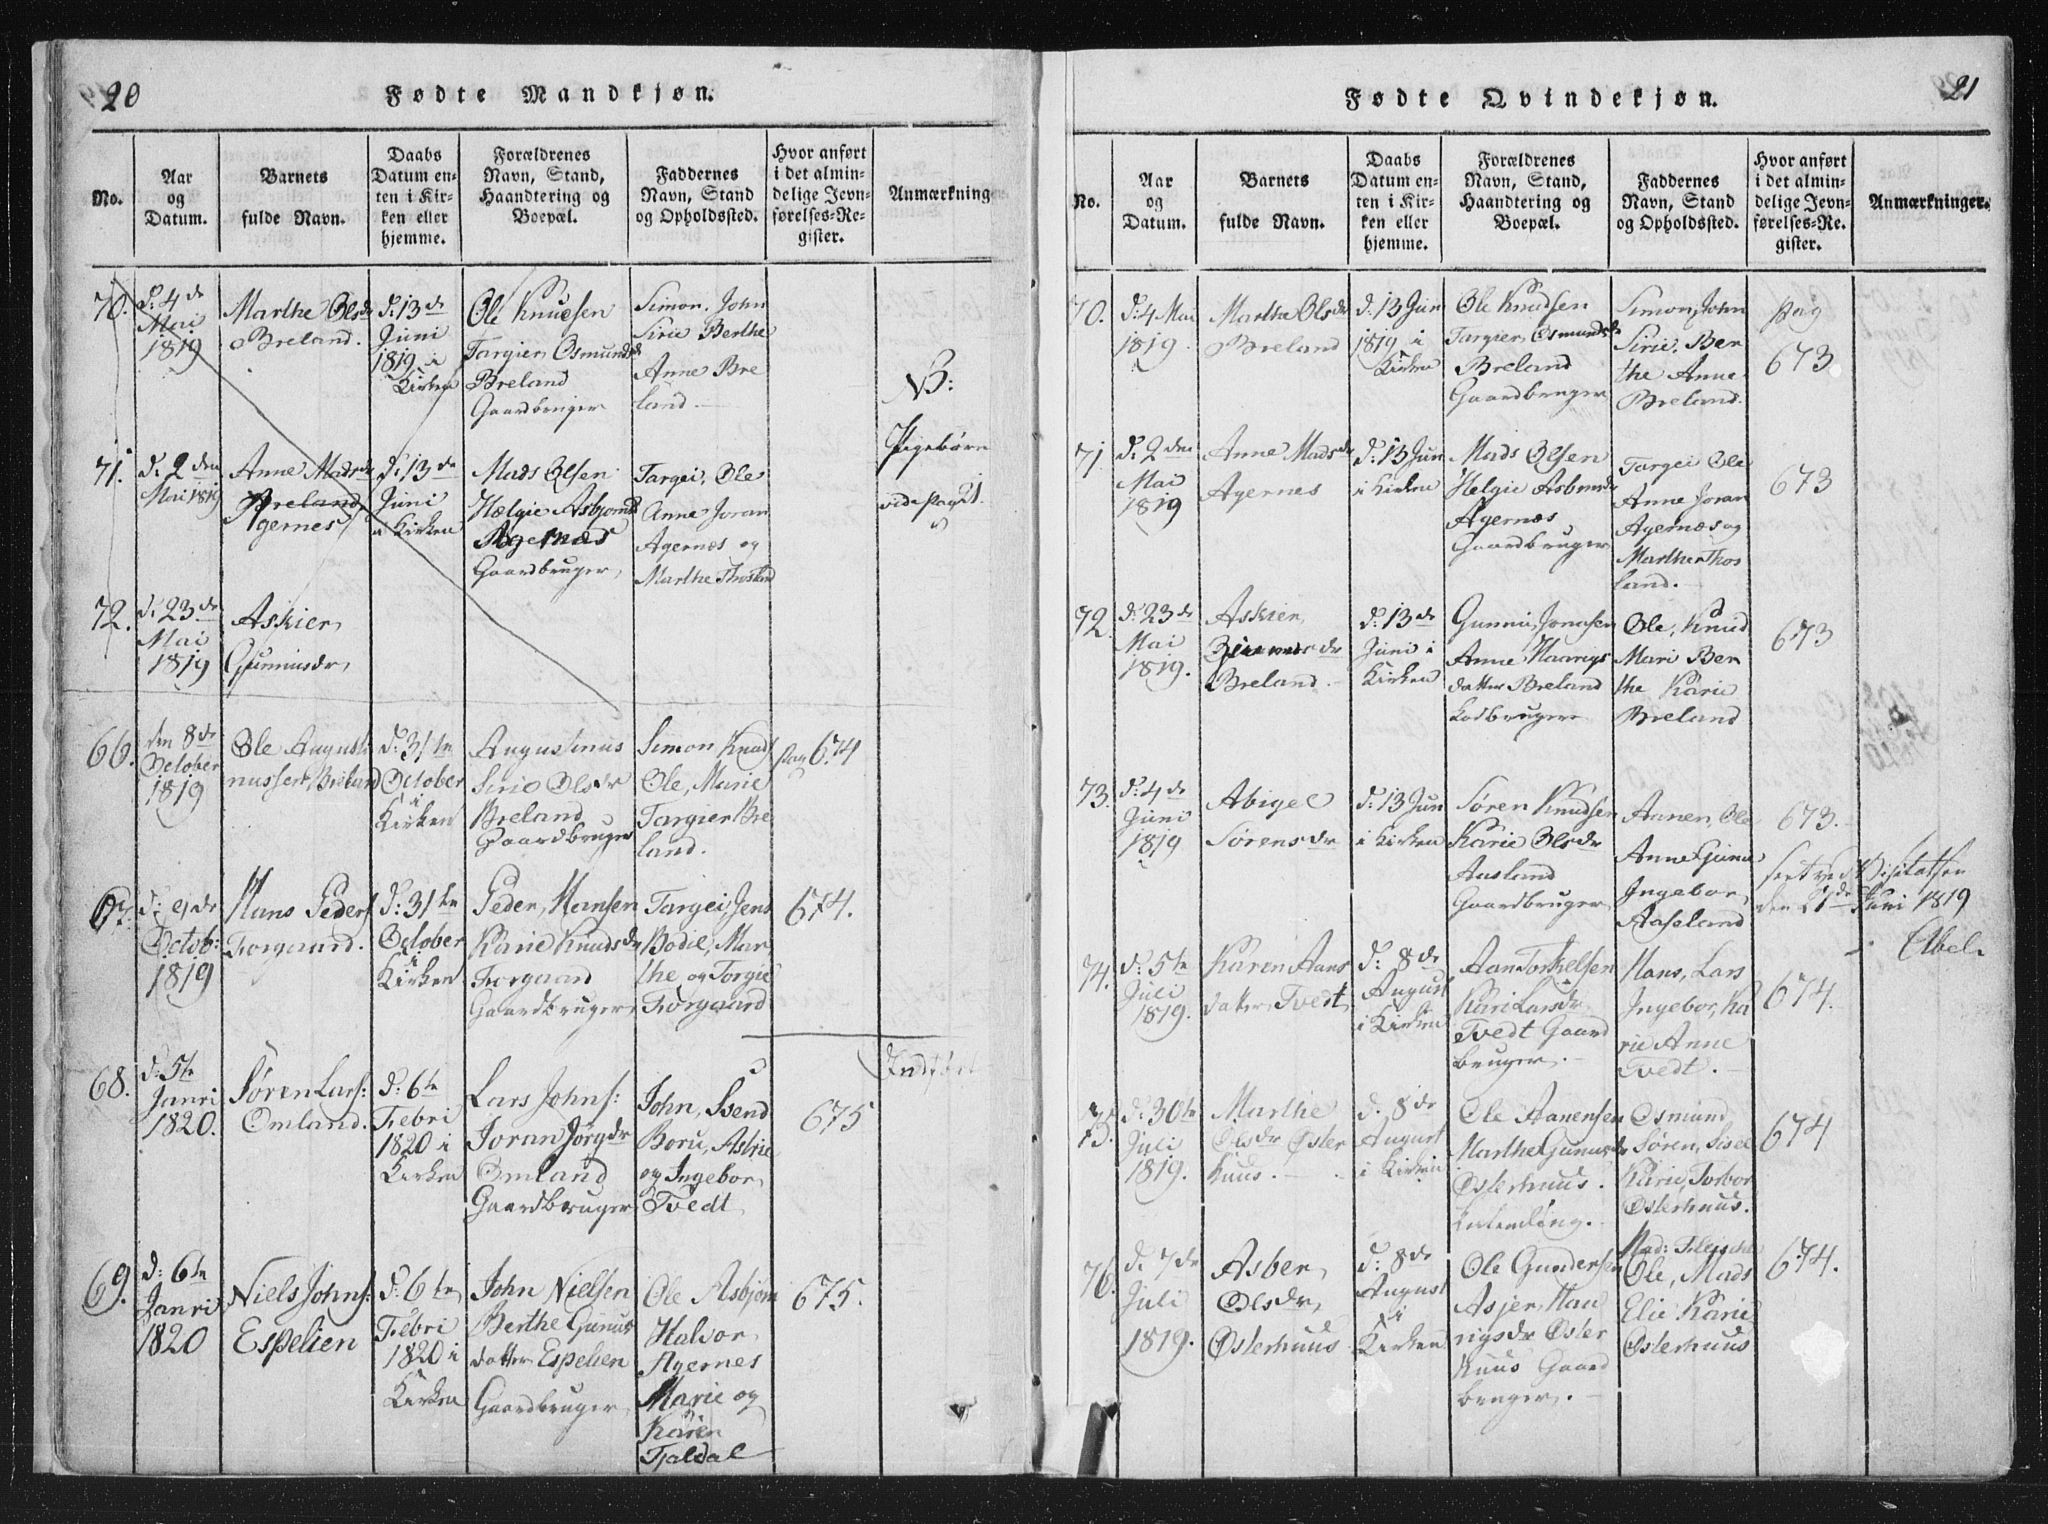 20
Fødte Mandkjøn.
No.
Aar
og
Datum.
Barnets
fulde Navn.
Daabs
Datum en-
ten i Kir-
ken eller
hjemme.
Forældrenes
Navn, Stand,
Haandtering og
Boepæl.
Faddernes
Navn, Stand
og Opholdssted.
Hvor anført
i det almin-
delige Jevn-
førelses-Re-
gister.
Anmærkninger
70.
d: 4 de
Mai
1819
Marthe Olsdr
Breland.
d: 13 de
Juni
1819 i
Kirken
Ole Knudsen
Targier Osmundsdr
Breland
Gaardbruger
Simon, John
Sirie Berthe
Anne Bre
land.
NB:
Pigebørn
vide pag 21.
71.
d: 2 den
Mai 1819
Anne Madsdr
Breland
Agernes
d: 13 de
Juni
i Kirken
Mads Olsen
Helgie Asbjornsdr
Agernæs
Gaardbruger
Targei, Ole
Anne Joran
Agernæs og
Marthe Thosland
72.
d: 23 de
Mai
1819
Askier
Gunnusdr
66.
den 8 de
October
1819
Ole Augusti
nussen Breland
d: 31 te
October
i
Kirken
Augustinus
Sirie Olsdr
Breland
Gaardbruger
Simon Knud
Ole, Marie
Targier Bre
land.
pag 674
67.
d: 9 de
Octob:
1819
Hans Peders
Torgaard.
d: 31 te
October
i
Kirken
Peder Hansen
Karie Knudsdr
Torgaard
Gaardbruger
Targei, Jens
Bodil, Mar
the og Torgie
Torgaard
674.
68.
d: 5te
Janri
1820.
Søren Lars:
Omland.
d: 6te
Febri
1820 i
Kirken
Lars Johns:
Joran Jørgdr
Omland
Gaardbruger
John, Svend
Boru, Astrie
og Ingebor
Tvedt
675
69.
d: 6te
Janri
1820
Niels Johns:
Espelien
d: 6te
Febri
1820 i
Kirken
John Nielsen
Berthe Gunus
datter Espelien
Gaardbruger
Ole Asbjorn
Halvor
Agernes
Marie og
Karen
Fjaldal
675.
21
Fødte Qvindekjøn.
No.
Aar
og
Datum.
Barnets
fulde Navn.
Daabs
Datum en-
ten i Kir-
ken eller
hjemme.
Forældrenes
Navn, Stand,
Haandtering og
Boepæl.
Faddernes
Navn, Stand
og Opholdssted.
Hvor anført
i det almin-
delige Jevn-
førelses-Re-
gister.
Anmærkninger.
70.
d: 4 Mai
1819
Marthe Olsdr
Breland
d: 13 Jun
1819 i
Kirken
Ole Knudsen
Targier Osmundsdr
Breland
Gaardbruger
Simon, John
Sirie, Ber
the Anne
Breland.
pag
673
71
d: 2 den
Mai
1819
Anne Madsdr
Agernes
d: 13 Jun
i Kirken
Mads Olsen
Helgie Asbornsdr
Agernæs
Gaardbruger
Targei Ole
Anne Joran
Agernæs og
Marthe Thos
land.
673
72.
d: 23 de
Mai
1819.
Askier
Breland.
d: 13 de
Juni i
Kirken
Gunnu Jonasen
Anne Haavgs
datter Breland
Ole, Knud
Mari Ber
the Karie
Breland
673
73.
d: 4 de
Juni
1819
Abigel
Sørensdr
d: 13 Jun
i Kirken
Søren Knudsen
Karie Olsdr
Aasland
Gaardbruger
Annen, Ole
Anne Gunu
Ingebor
Aaseland
673.
seet ved Visitatsen
den 21 de Juni 1819
Abel.
74.
d: 5te
Juli
1819.
Karen Aans
datter Tvedt
d: 8 de
August
i Kirken
Aan Torkelsen
Kari Larsdr
Tvedt Gaard
bruger.
Hans, Lars
Ingebor, Ka
rie Anne
Tvedt.
674.
75.
d: 30te
Juli
1819.
Marthe
Olsdr Øster
huus.
d: 8 de
August
i Kirken
Ole Aanensen
Marthe Gunusdr
Østerhuus.
Osmund
Søren, Sisel
Karie, Torbor
Østerhuus.
674
76.
d: 7 de
Juli
1819.
Asber
Olsdr
Østerhuus
d: 8 de
August
i
Kirken
Ole Gundersen
Asjer Hau
rigsdr Øster
huus Gaard
bruger.
Ole, Mads
Elie Karie
Østerhuus
674.